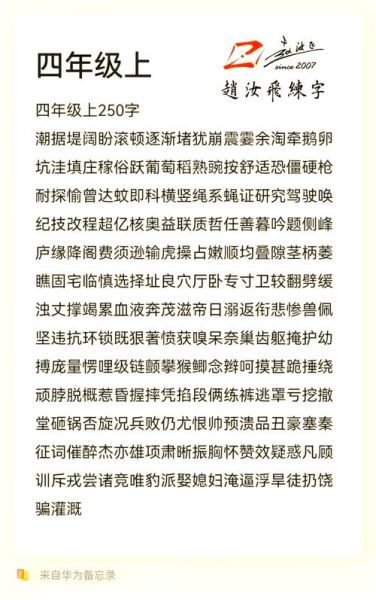 四年级上
since 2007
趙汝飛練字
四年级上250字
潮据堤阔盼滚顿逐渐堵犹崩震霎余淘牵鹅卵
坑洼填庄稼俗跃葡萄稻熟豌按舒适恐僵硬枪
耐探愉曾达蚊即科横竖绳系蝇证研究驾驶唤
纪技改程超亿核奥益联质哲任善暮吟题侧峰
庐缘降阁费须逊输虎操占嫩顺均叠隙茎柄萎
瞧固宅临慎选择址良穴厅卧专寸卫较翻劈缓
浊丈撑竭累血液奔茂滋帝日溺返衔悲惨兽佩
坚违抗环锁既狠著愤获嗅呆奈巢齿躯掩护幼
搏庞量愣哩级链颤攀猴鲫念辫呵摸甚跪捶绕
顽脖脱概惹昏握摔凭掐段俩练裤逃罩亏挖撤
堂砸锅否旋况兵败仍尤恨帅预溃品丑豪塞秦
征词催醉杰亦雄项肃晰振胸怀赞效疑惑凡顾
训斥戎尝诸竞唯豹派娶媳妇淹逼浮旱徒扔饶
骗灌溉
来自华为备忘录